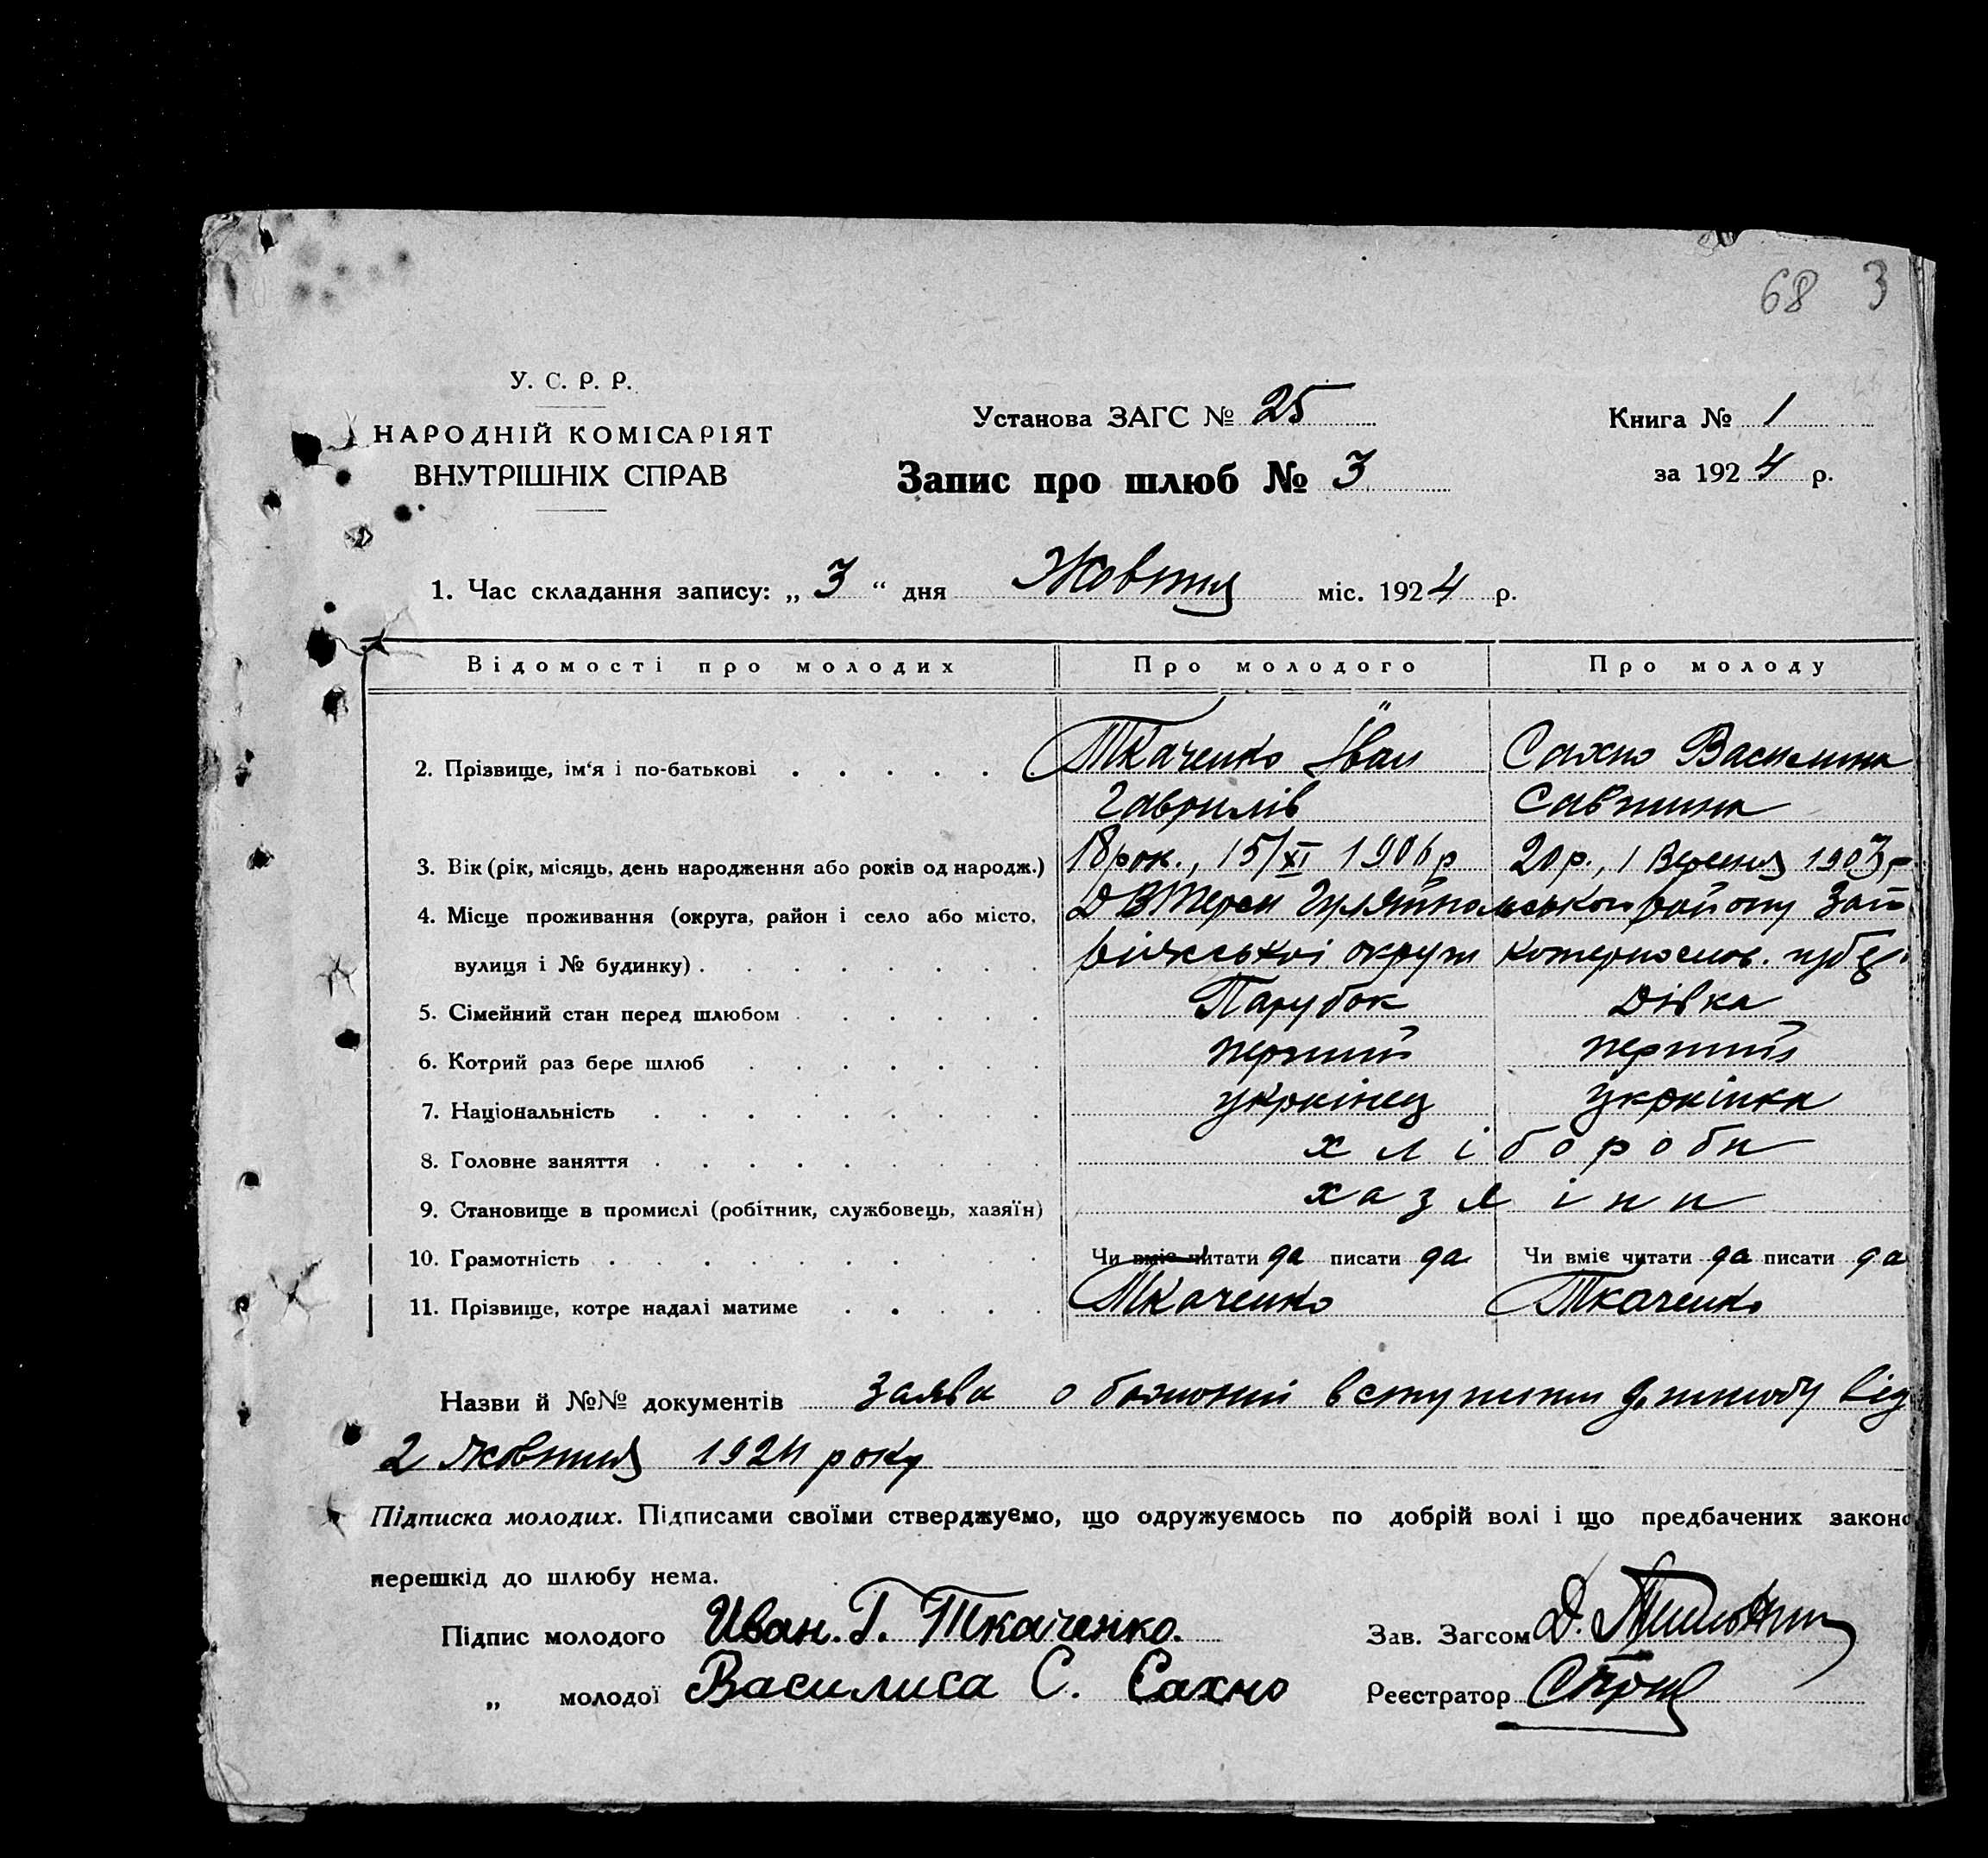 68 3
У. С. Р. Р.
НАРОДНІЙ КОМІСАРІЯТ
ВНУТРІШНІХ СПРАВ
Установа ЗАГС № 25
Книга № 1
Запис про шлюб № 3
за 1924 р.
1. Час складання запису: „ 3 “ дня Жовтня міс. 1924 р.
Відомості про молодих Про молодого Про молоду
2. Прізвище, ім‘я і по-батькові Ткаченко Іван Сахно Василина
Гаврилів Савтина
3. Вік (рік, місяць, день народження або років од народж.) 18 рок., 15/XI 1906 р 20 р., 1 Вересня 1903 р.
4. Місце проживання (округа, район і село або місто, Гуляйпольського району Запо
вулиця і № будинку) ріжської округи котеринослов. губ.
5. Сімейний стан перед шлюбом Парубок Дівка
6. Котрий раз бере шлюб перший перший
7. Національність українец українка
8. Головне заняття хлібороби
9. Становище в промислі (робітник, службовець, хазяїн) хазяіни
10. Грамотність Чи вміє читати да писати да Чи вміє читати да писати да
11. Прізвище, котре надалі матиме Ткаченко Ткаченко
Назви й №№ документів Заява о бажонні вступити до шлюбу від
2 Жовтня 1924 року
Підписка молодих. Підписами своїми стверджуємо, що одружуємось по добрій волі і що предбачених законо
перешкід до шлюбу нема.
Підпис молодого Иван. Г. Ткаченко.
Зав. Загсом Д.
„ молодої Василиса С. Сахно
Реєстратор